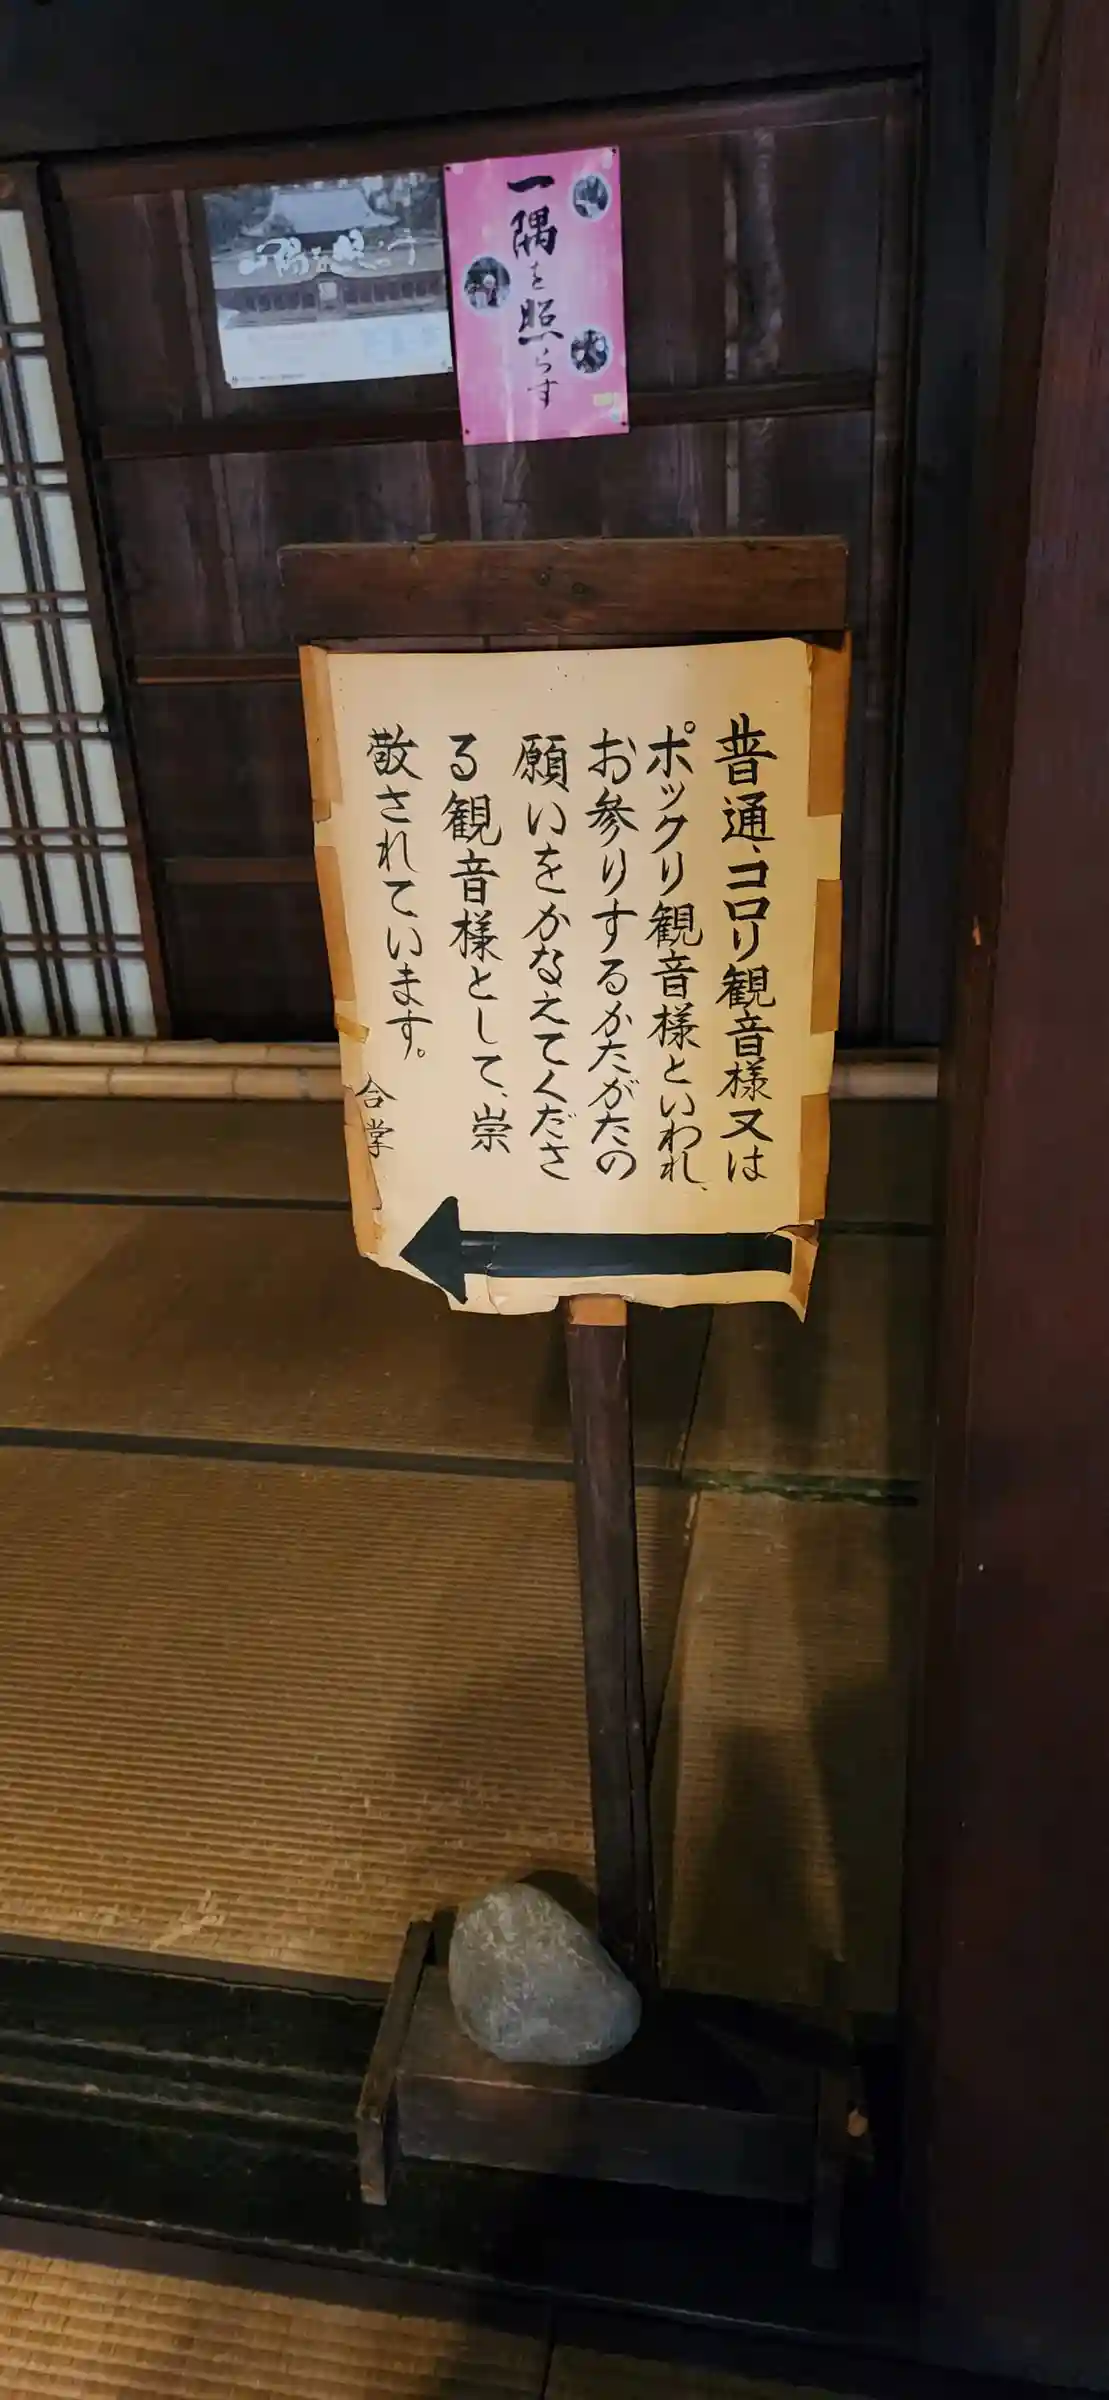 一隅を照らす
一隅を照らす
普通、コロリ観音様又は
ポックリ観音様といわれ、
お参りするかたがたの
願いをかなえてくださ
る観音様として、崇
敬されています。
合掌